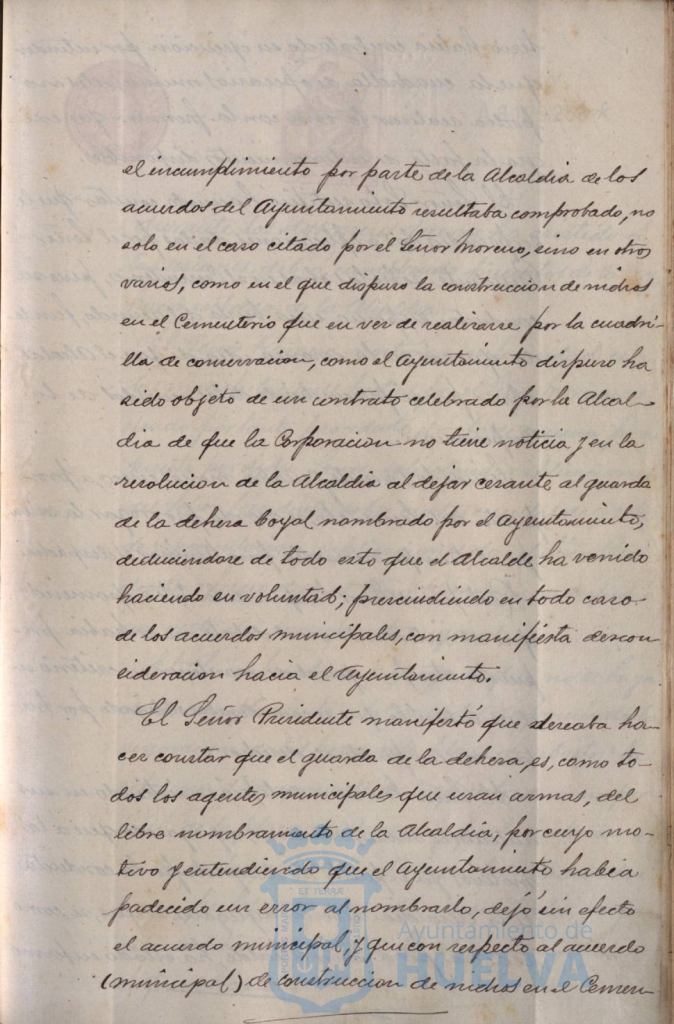 el incumplimiento por parte de la Alcaldia de los
acuerdos del Ayuntamiento resultaba comprobado, no
solo en el caso citado por el Señor Moreno, sino en otros
varios, como en el que dispuso la construccion de nichos
en el Cementerio que en vez de realizarse por la cuadri-
lla de conservacion, como el Ayuntamiento dispuso ha
sido objeto de un contrato celebrado por la Alcal-
dia de que la Corporacion no tiene noticia y en la
resolucion de la Alcaldia al dejar cesante al guarda
de la dehesa boyal nombrado por el Ayuntamiento,
deduciendose de todo esto que el Alcalde ha venido
haciendo su voluntad; prescindiendo en todo caso
de los acuerdos municipales, con manifiesta descon
sideracion hacia el Ayuntamiento.
El Señor Presidente manifestó que deseaba ha-
cer constar que el guarda de la dehesa, es, como to-
dos los agentes municipales que usan armas, del
libre nombramiento de la Alcaldia, por cuyo mo-
tivo y entendiendo que el Ayuntamiento habia
padecido un error al nombrarlo, dejó sin efecto
el acuerdo municipal, y que con respecto al acuerdo
(municipal) de construccion de nichos en el Cemen
ET TERRÆ
Ayuntamiento de
HUELVA